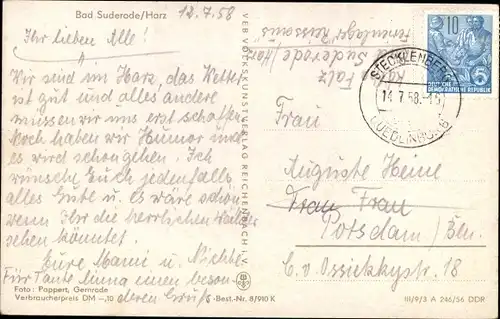 Bad Suderode/Harz
12.7.58
Ihr lieben Alle!
Wir sind im Harz, das Wetter
ist gut und alles andere
müssen wir uns erst schaffen
Noch haben wir Humor und
es wird schon gehen. Ich
wünsche Euch jedenfalls
alles Gute u. es wäre schön
wenn Ihr die herrlichen Wälder
sehen könntet.
Eure Mami u. Nichte
Für Tante Anna einen beson-
deren Gruß
Foto: Poppert, Gernrode
Verbraucherpreis DM -,10
Best.-Nr. 8/910 K
VEB VOLKSKUNSTVERLAG REICHENBACH I. V.
Falz
Suderode/Harz
Ferienlager
10
DEUTSCHE
DEMOKRATISCHE REPUBLIK
STECKLENBERG
14.7.58.-15
QUEDLINBURG
Frau
Auguste Heine
Frau
Potsdam/Bln.
C. v. Ossietzkystr. 18
III/9/3 A 246/56 DDR